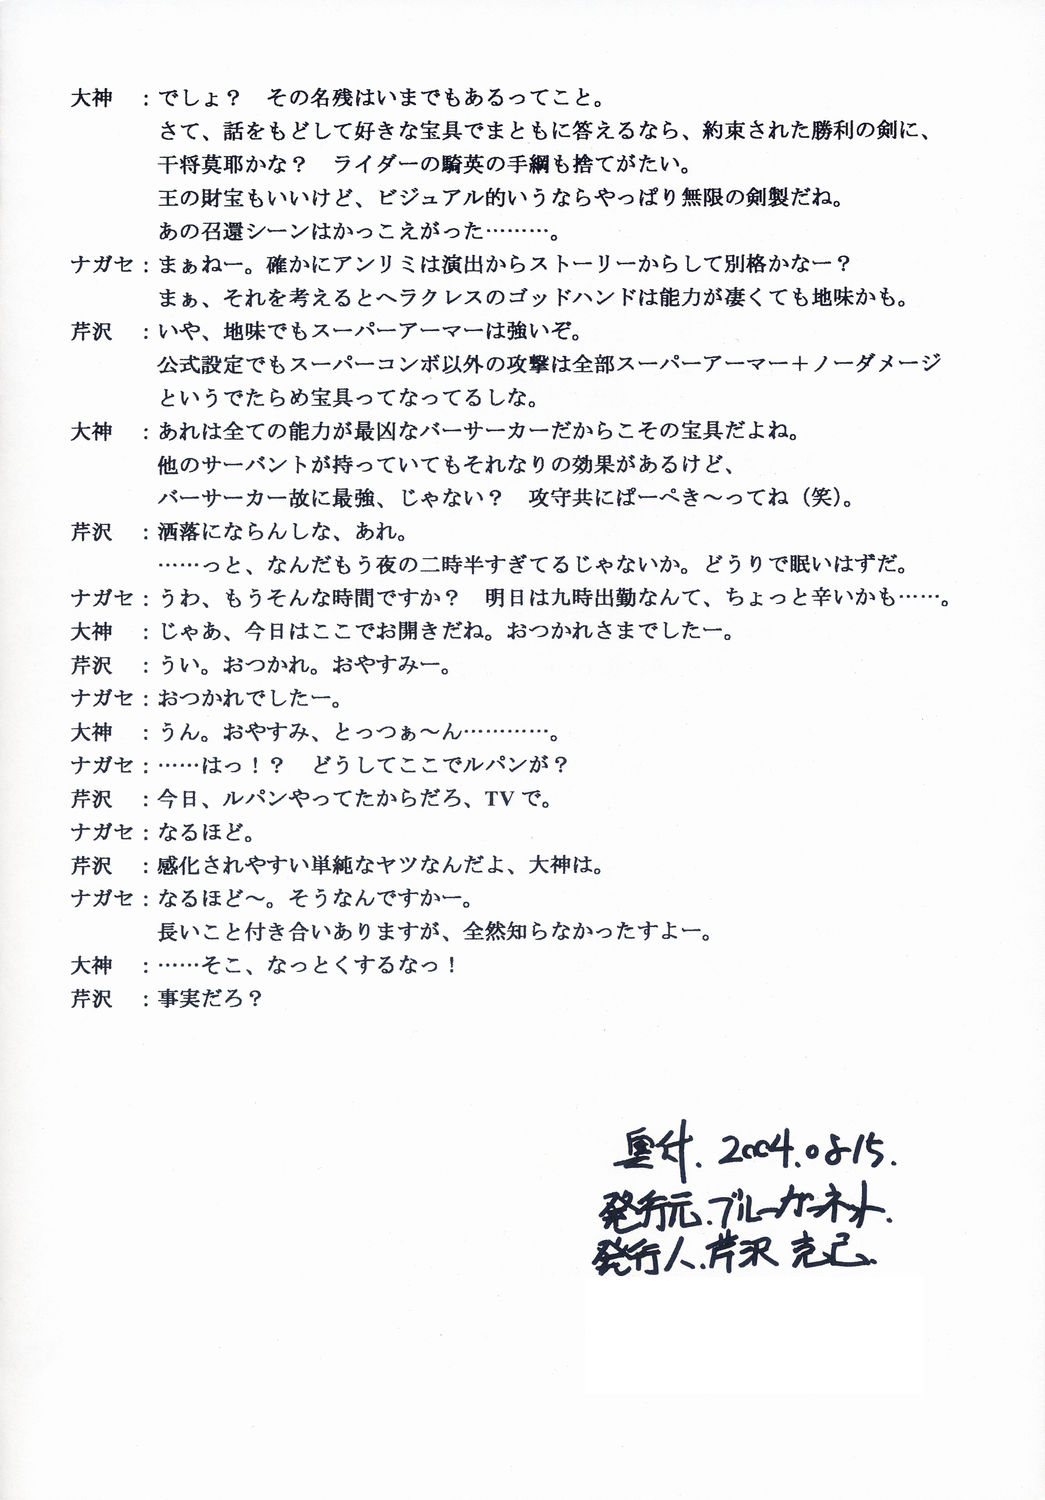 大神　：でしょ？　その名残はいまでもあるってこと。
さて、話をもどして好きな宝具でまともに答えるなら、約束された勝利の剣に、
干将莫耶かな？　ライダーの騎英の手綱も捨てがたい。
王の財宝もいいけど、ビジュアル的いうならやっぱり無限の剣製だね。
あの召還シーンはかっこえがった………。
ナガセ：まぁねー。確かにアンリミは演出からストーリーからして別格かなー？
まぁ、それを考えるとヘラクレスのゴッドハンドは能力が凄くても地味かも。
芹沢　：いや、地味でもスーパーアーマーは強いぞ。
公式設定でもスーパーコンボ以外の攻撃は全部スーパーアーマー＋ノーダメージ
というでたらめ宝具ってなってるしな。
大神　：あれは全ての能力が最凶なバーサーカーだからこその宝具だよね。
他のサーバントが持っていてもそれなりの効果があるけど、
バーサーカー故に最強、じゃない？　攻守共にぱーぺき～ってね（笑）。
芹沢　：洒落にならんしな、あれ。
……っと、なんだもう夜の二時半すぎてるじゃないか。どうりで眠いはずだ。
ナガセ：うわ、もうそんな時間ですか？　明日は九時出勤なんて、ちょっと辛いかも……。
大神　：じゃあ、今日はここでお開きだね。おつかれさまでしたー。
芹沢　：うい。おつかれ。おやすみー。
ナガセ：おつかれでしたー。
大神　：うん。おやすみ、とっつぁ～ん…………。
ナガセ：……はっ！？　どうしてここでルパンが？
芹沢　：今日、ルパンやってたからだろ、TVで。
ナガセ：なるほど。
芹沢　：感化されやすい単純なヤツなんだよ、大神は。
ナガセ：なるほど～。そうなんですかー。
長いこと付き合いありますが、全然知らなかったすよー。
大神　：……そこ、なっとくするなっ！
芹沢　：事実だろ？
奥付．2004.08.15.
発行元．ブルーガーネット．
発行人．芹沢 克己．